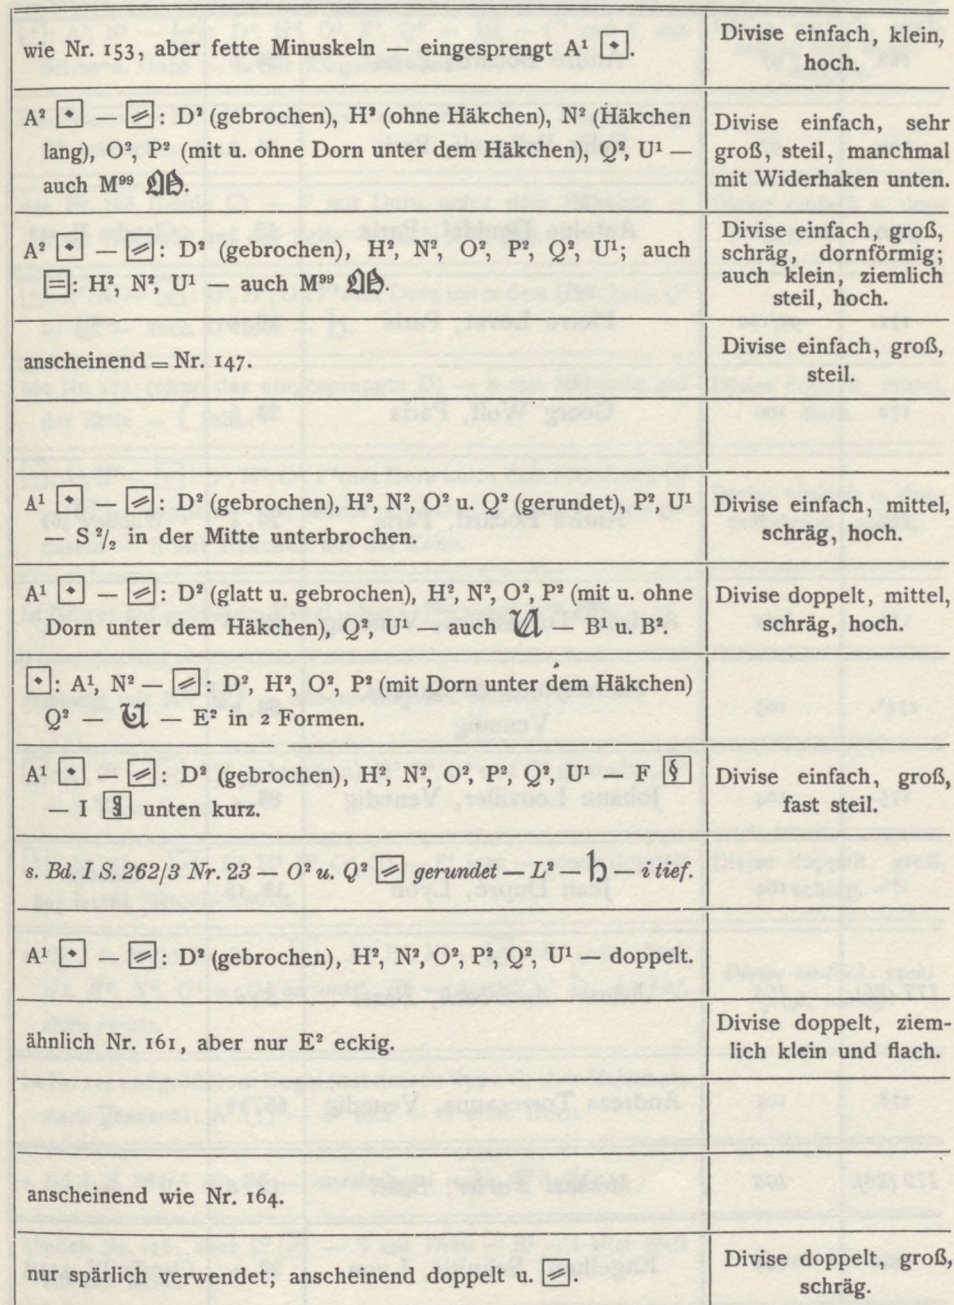 wie Nr. 153, aber fette Minuskeln — eingesprengt A¹ [◆].
Divise einfach, klein,
hoch.
A² [◆] — [⫽]: D² (gebrochen), H² (ohne Häkchen), N² (Häkchen
lang), O², P² (mit u. ohne Dorn unter dem Häkchen), Q², U¹ —
auch M⁹⁹ 𝔐.
Divise einfach, sehr
groß, steil, manchmal
mit Widerhaken unten.
A² [◆] — [⫽]: D² (gebrochen), H², N², O², P², Q², U¹; auch
[=]: H², N², U¹ — auch M⁹⁹ 𝔐.
Divise einfach, groß,
schräg, dornförmig;
auch klein, ziemlich
steil, hoch.
anscheinend = Nr. 147.
Divise einfach, groß,
steil.
A¹ [◆] — [⫽]: D² (gebrochen), H², N², O² u. Q² (gerundet), P², U¹
— S ²/₂ in der Mitte unterbrochen.
Divise einfach, mittel,
schräg, hoch.
A¹ [◆] — [⫽]: D² (glatt u. gebrochen), H², N², O², P² (mit u. ohne
Dorn unter dem Häkchen), Q², U¹ — auch 𝔄 — B¹ u. B².
Divise doppelt, mittel,
schräg, hoch.
[◆]: A¹, N² — [⫽]: D², H², O², P² (mit Dorn unter dem Häkchen)
Q² — 𝔄 — E² in 2 Formen.
A¹ [◆] — [⫽]: D² (gebrochen), H², N², O², P², Q², U¹ — F [§]
— I [§] unten kurz.
Divise einfach, groß,
fast steil.
s. Bd. I S. 262/3 Nr. 23 — O² u. Q² [⫽] gerundet — L² — 𝔥 — i tief.
A¹ [◆] — [⫽]: D² (gebrochen), H², N², O², P², Q², U¹ — doppelt.
ähnlich Nr. 161, aber nur E² eckig.
Divise doppelt, ziem-
lich klein und flach.
anscheinend wie Nr. 164.
nur spärlich verwendet; anscheinend doppelt u. [⫽].
Divise doppelt, groß,
schräg.